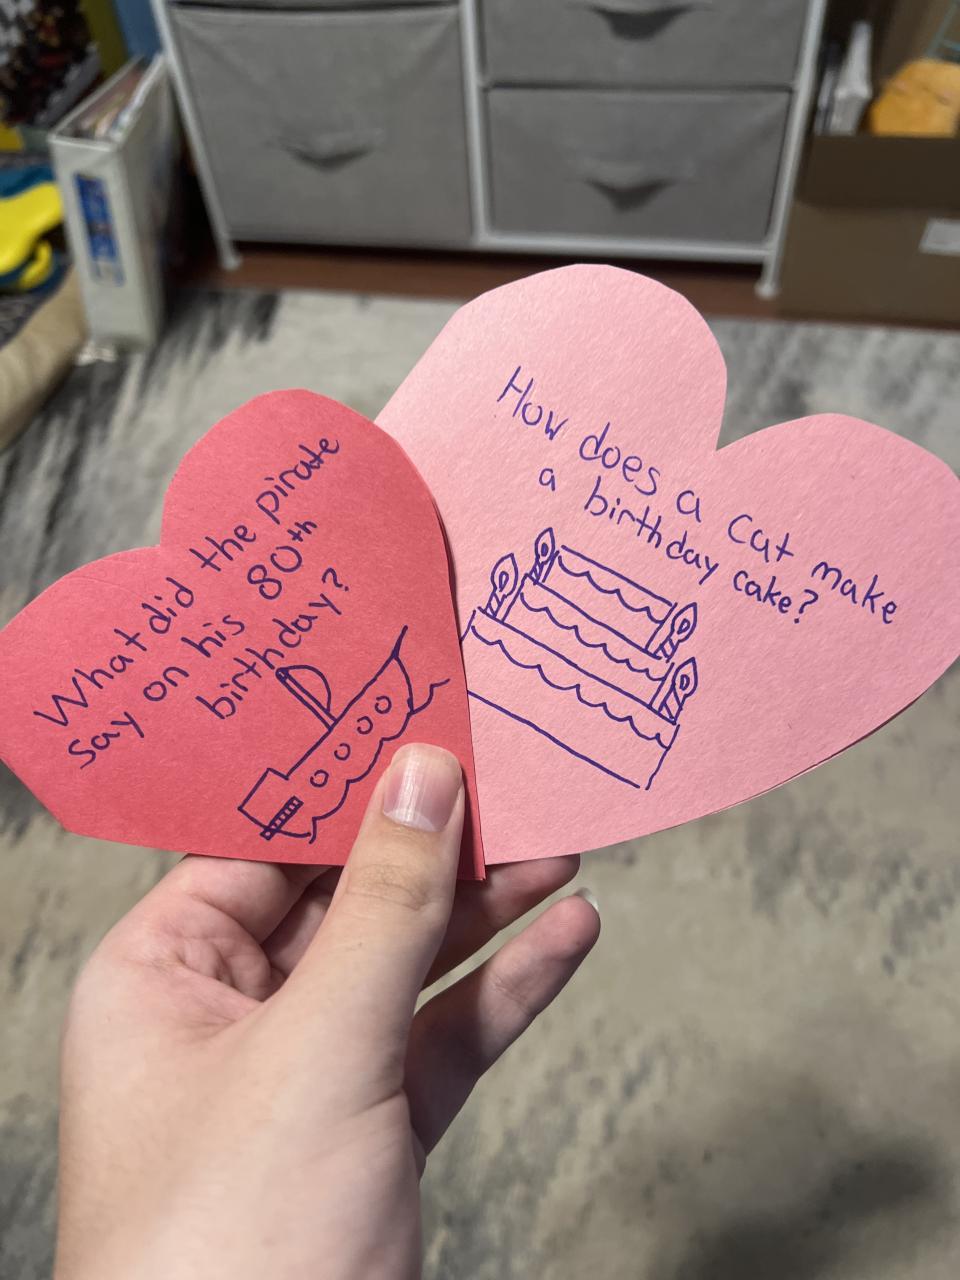 What did the pirate
say on his 80th
birthday?
How does a cat make
a birthday cake?